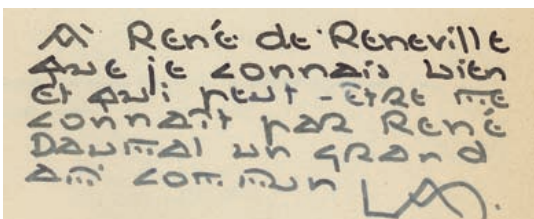 A René de Reneville
que je connais bien
et qui peut-être me
connaît par René
Daumal un grand
ami commun